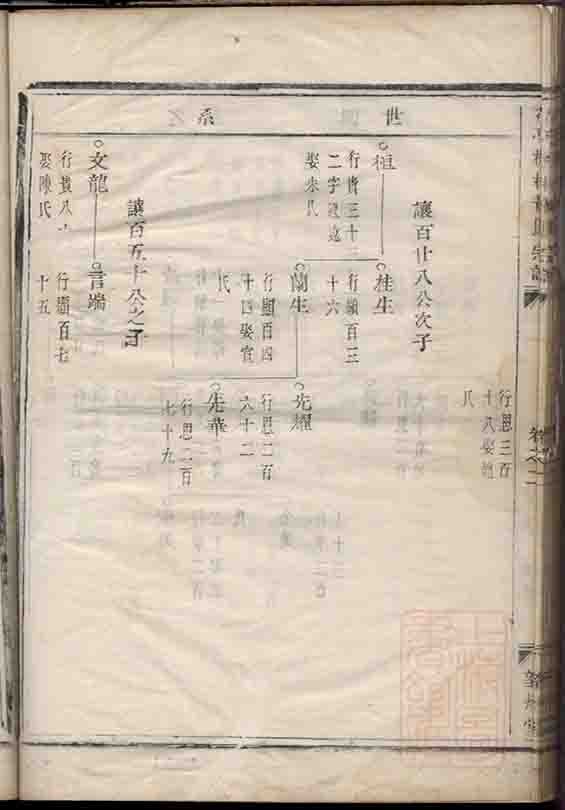 世系
行思三百
十八娶趙
氏
讓百廿八公次子
桓
行貴三十一
二字
娶朱氏
桂生
行顯百三
十六
蘭生
行顯百四
十四娶官
氏
先耀
行思二百
六十二
先華
行思二百
七十九
讓百五十公之子
文龍
行貴八十
娶陳氏
言端
行顯百七
十五